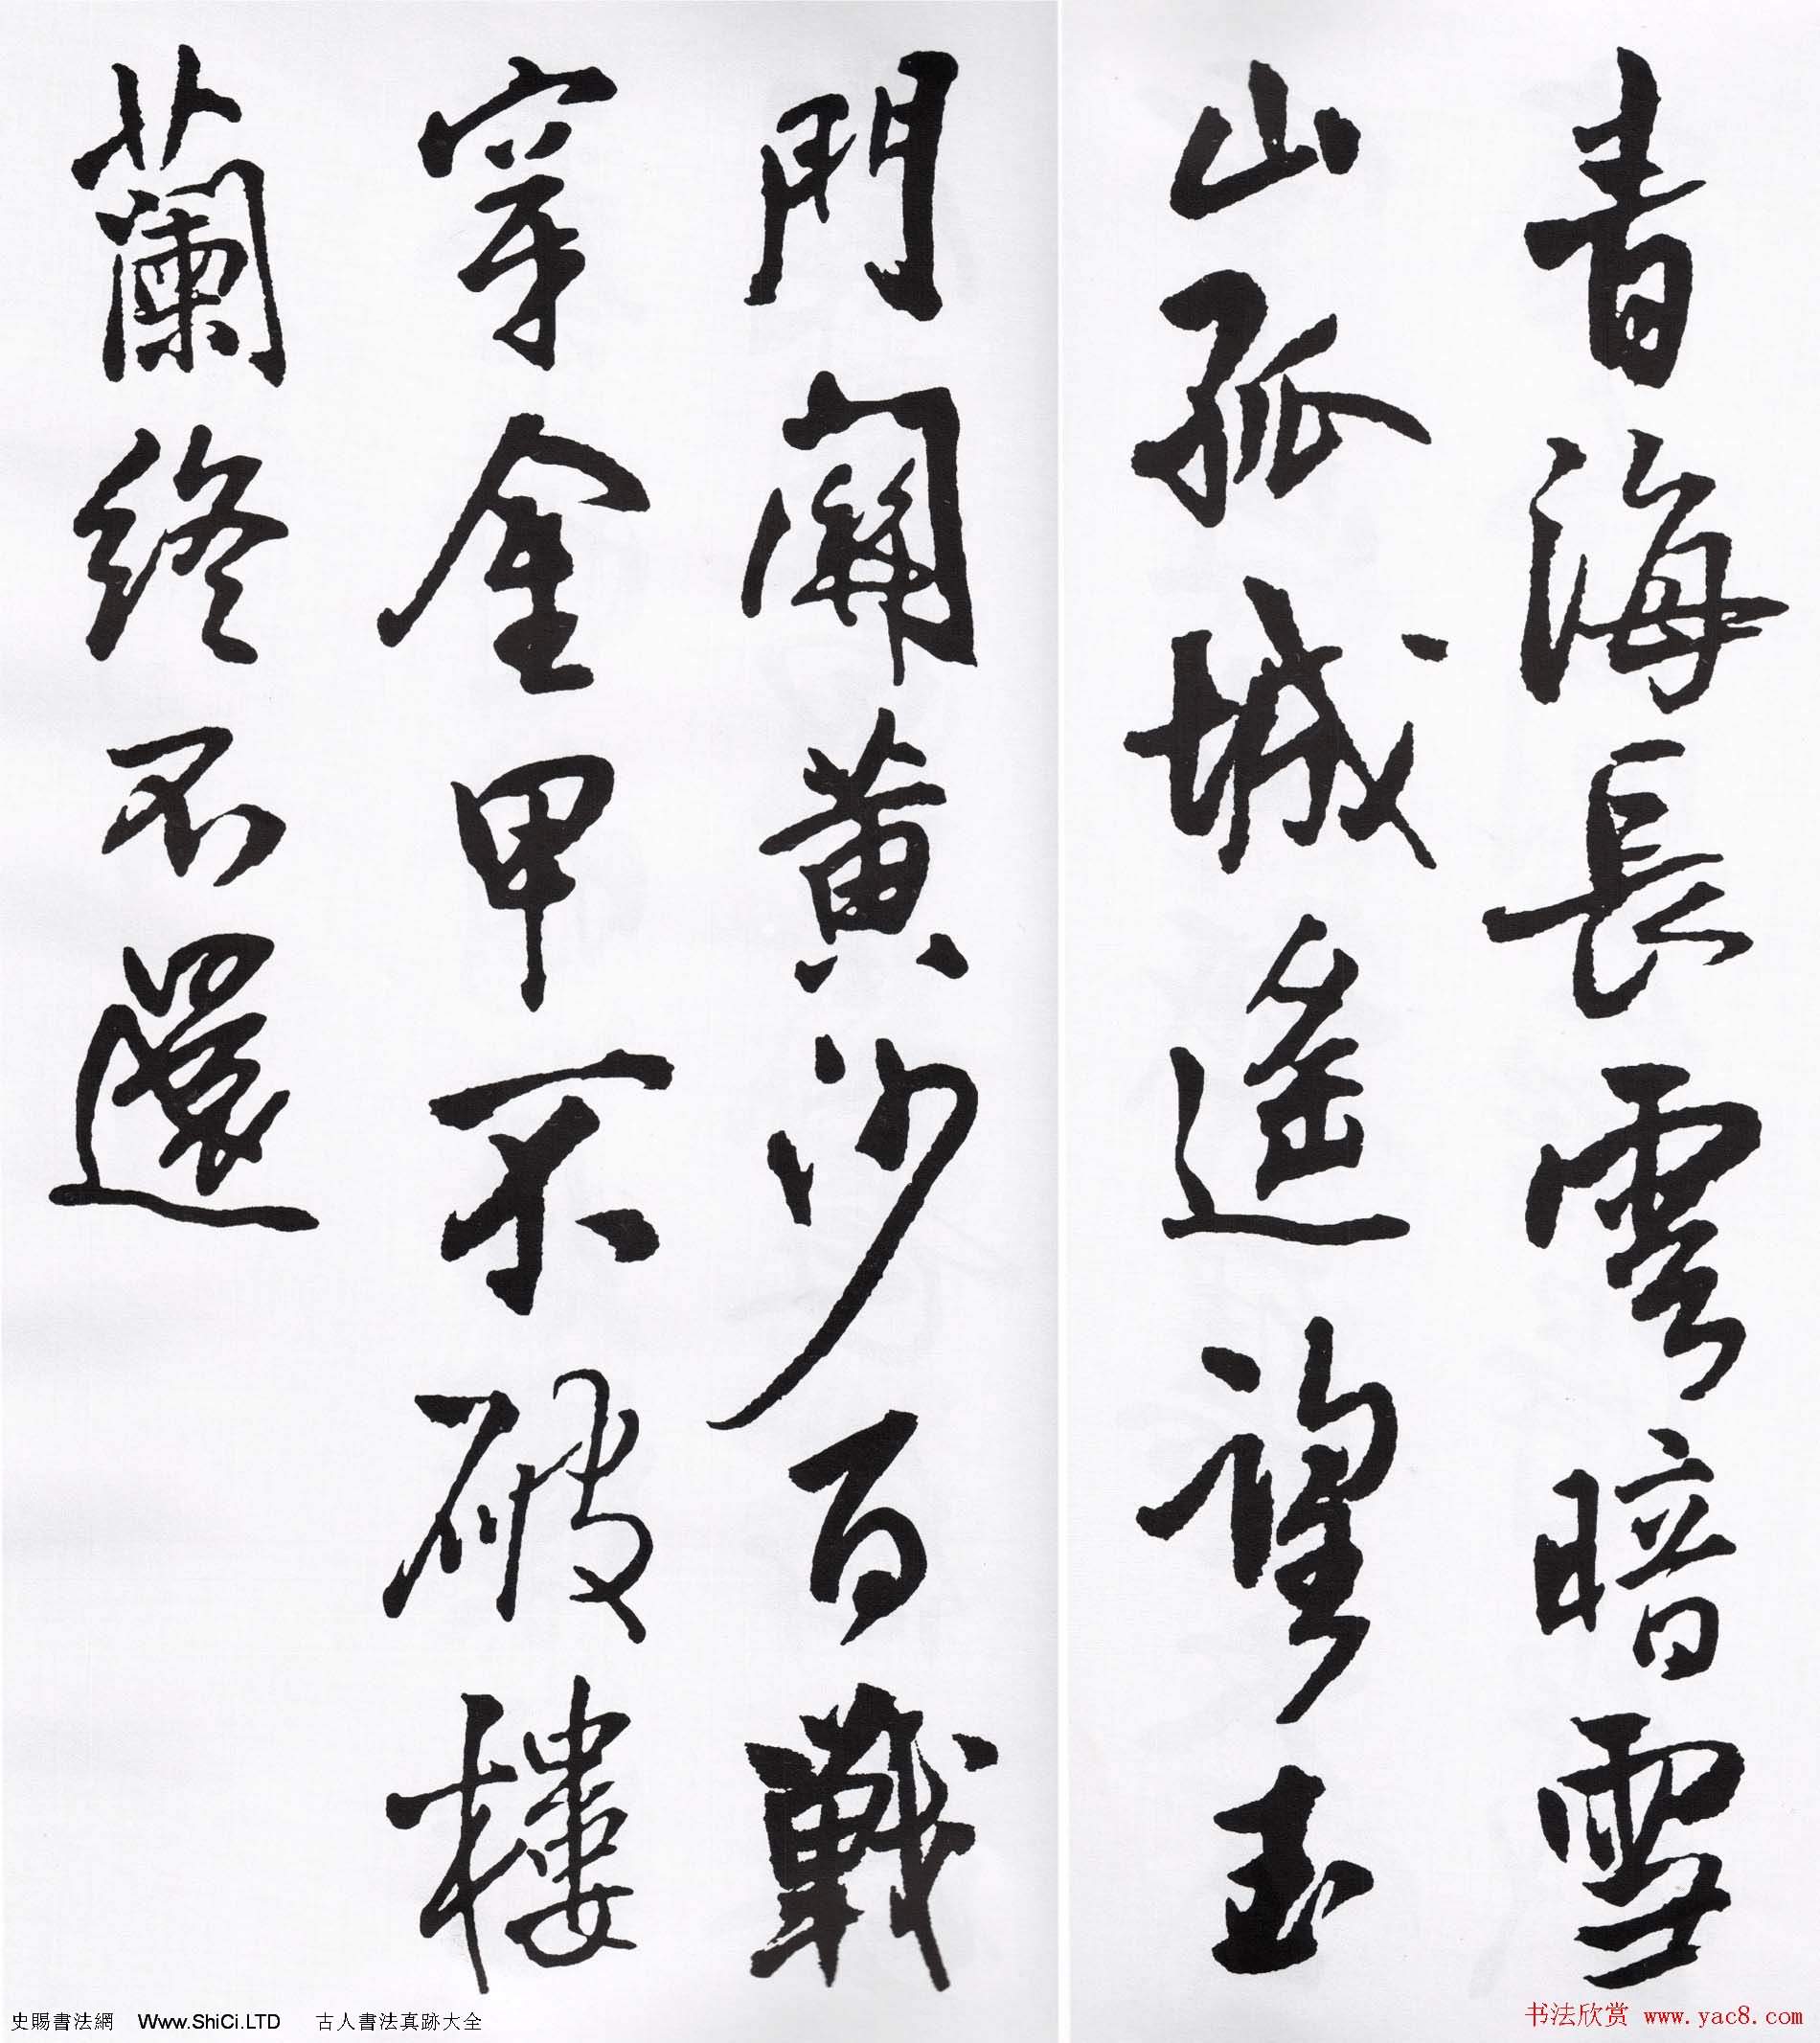 青海長雲暗雪
山孤城遙望玉
門關黄沙百戰
穿金甲不破樓
蘭終不還
史賜書法網 Www.ShiCi.LTD 古人書法真跡大全
书法欣赏 www.yac8.com